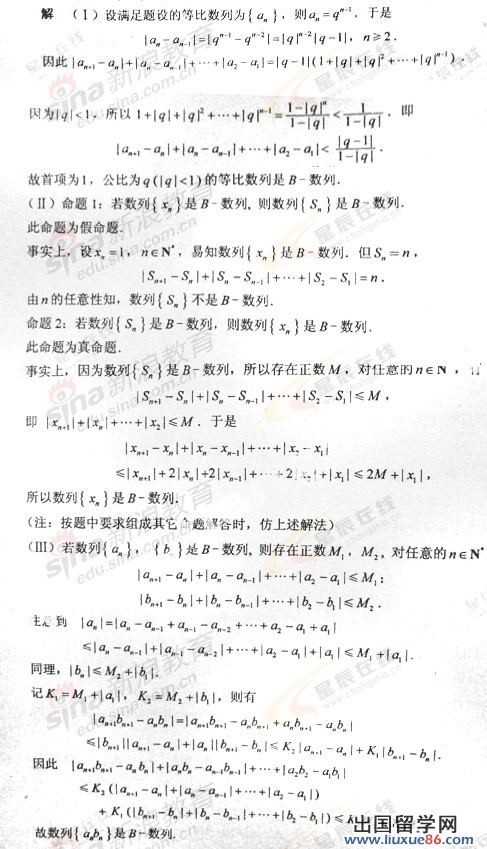 解 (Ⅰ) 设满足题设的等比数列为{aₙ}，则aₙ=qⁿ⁻¹．于是
|aₙ−aₙ₋₁|=|qⁿ⁻¹−qⁿ⁻²|=|q|ⁿ⁻²|q−1|，n≥2．
因此|aₙ₊₁−aₙ|+|aₙ−aₙ₋₁|+⋯+|a₂−a₁|=|q−1|(1+|q|+|q|²+⋯+|q|ⁿ⁻¹)．
因为|q|<1，所以 1+|q|+|q|²+⋯+|q|ⁿ⁻¹=(1−|q|ⁿ)/(1−|q|)<1/(1−|q|)．即
|aₙ₊₁−aₙ|+|aₙ−aₙ₋₁|+⋯+|a₂−a₁|<|q−1|/(1−|q|)．
故首项为1，公比为q(|q|<1)的等比数列是B−数列．
(Ⅱ) 命题1：若数列{xₙ}是B−数列，则数列{Sₙ}是B−数列．
此命题为假命题．
事实上，设xₙ=1，n∈N*，易知数列{xₙ}是B−数列．但Sₙ=n，
|Sₙ₊₁−Sₙ|+|Sₙ−Sₙ₋₁|+⋯+|S₂−S₁|=n．
由n的任意性知，数列{Sₙ}不是B−数列．
命题2：若数列{Sₙ}是B−数列，则数列{xₙ}是B−数列．
此命题为真命题．
事实上，因为数列{Sₙ}是B−数列，所以存在正数M，对任意的n∈N，
|Sₙ₊₁−Sₙ|+|Sₙ−Sₙ₋₁|+⋯+|S₂−S₁|≤M，
即 |xₙ₊₁|+|xₙ|+⋯+|x₂|≤M．于是
|xₙ₊₁−xₙ|+|xₙ−xₙ₋₁|+⋯+|x₂−x₁|
≤|xₙ₊₁|+2|xₙ|+2|xₙ₋₁|+⋯+2|x₂|+|x₁|≤2M+|x₁|，
所以数列{xₙ}是B−数列．
(注：按题中要求组成其它命题解答时，仿上述解法)
(Ⅲ) 若数列{aₙ}，{bₙ}是B−数列，则存在正数M₁，M₂，对任意的n∈N*
|aₙ₊₁−aₙ|+|aₙ−aₙ₋₁|+⋯+|a₂−a₁|≤M₁；
|bₙ₊₁−bₙ|+|bₙ−bₙ₋₁|+⋯+|b₂−b₁|≤M₂．
注意到 |aₙ|=|aₙ−aₙ₋₁+aₙ₋₁−aₙ₋₂+⋯+a₂−a₁+a₁|
≤|aₙ−aₙ₋₁|+|aₙ₋₁−aₙ₋₂|+⋯+|a₂−a₁|+|a₁|≤M₁+|a₁|．
同理，|bₙ|≤M₂+|b₁|．
记K₁=M₁+|a₁|，K₂=M₂+|b₁|，则有
|aₙ₊₁bₙ₊₁−aₙbₙ|=|aₙ₊₁bₙ₊₁−aₙbₙ₊₁+aₙbₙ₊₁−aₙbₙ|
≤|bₙ₊₁||aₙ₊₁−aₙ|+|aₙ||bₙ₊₁−bₙ|≤K₂|aₙ₊₁−aₙ|+K₁|bₙ₊₁−bₙ|．
因此 |aₙ₊₁bₙ₊₁−aₙbₙ|+|aₙbₙ−aₙ₋₁bₙ₋₁|+⋯+|a₂b₂−a₁b₁|
≤K₂(|aₙ₊₁−aₙ|+|aₙ−aₙ₋₁|+⋯+|a₂−a₁|)
+K₁(|bₙ₊₁−bₙ|+|bₙ−bₙ₋₁|+⋯+|b₂−b₁|)≤
故数列{aₙbₙ}是B−数列．
出国留学网
www.liuxue86.com